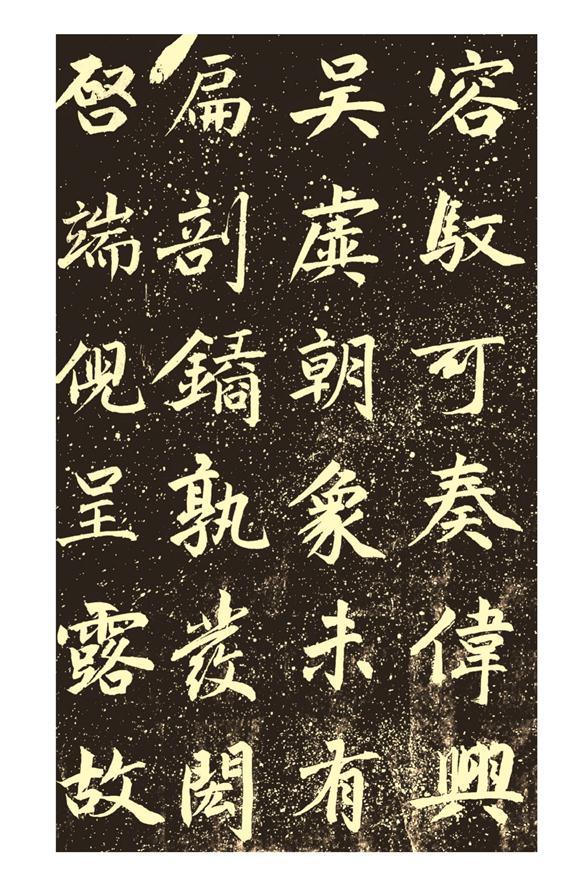 容馭可奏偉興
吴虞朝象未有
扁剖鐍孰發閎
啓端倪呈露故